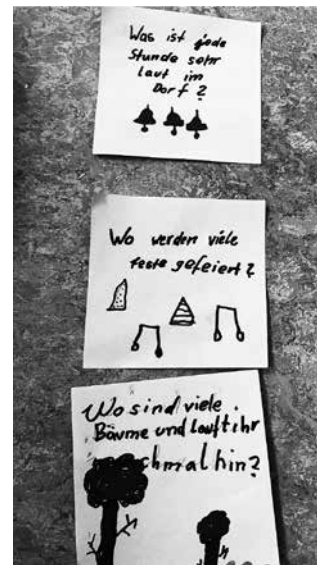 Was ist jede
Stunde sehr
laut im
Dorf?
Wo werden viele
feste gefeiert?
Wo sind viele
Bäume und lauft ihr
hin?